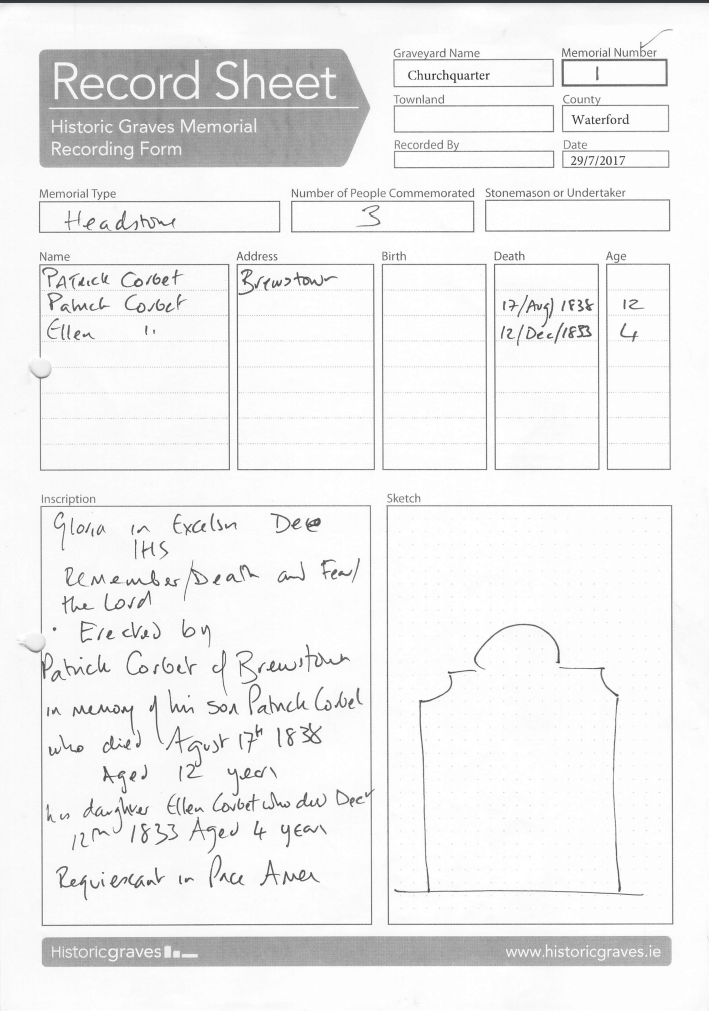 Record Sheet
Historic Graves Memorial
Recording Form
Graveyard Name
Churchquarter
Memorial Number
1
Townland
County
Waterford
Recorded By
Date
29/7/2017
Memorial Type
Headstone
Number of People Commemorated
3
Stonemason or Undertaker
Name Address Birth Death Age
Patrick Corbet Brewstown
Patrick Corbet 17/Aug/1838 12
Ellen " 12/Dec/1833 4
Inscription
Gloria in Excelsn Deo
IHS
Remember/Death and Fear/
the Lord
· Erected by
Patrick Corbet of Brewstown
in memory of his son Patrick Corbet
who died Agust 17th 1838
Aged 12 years
his daughter Ellen Corbet who died Decr
12th 1833 Aged 4 years
Requiescant in Pace Amen
Sketch
Historicgraves
www.historicgraves.ie